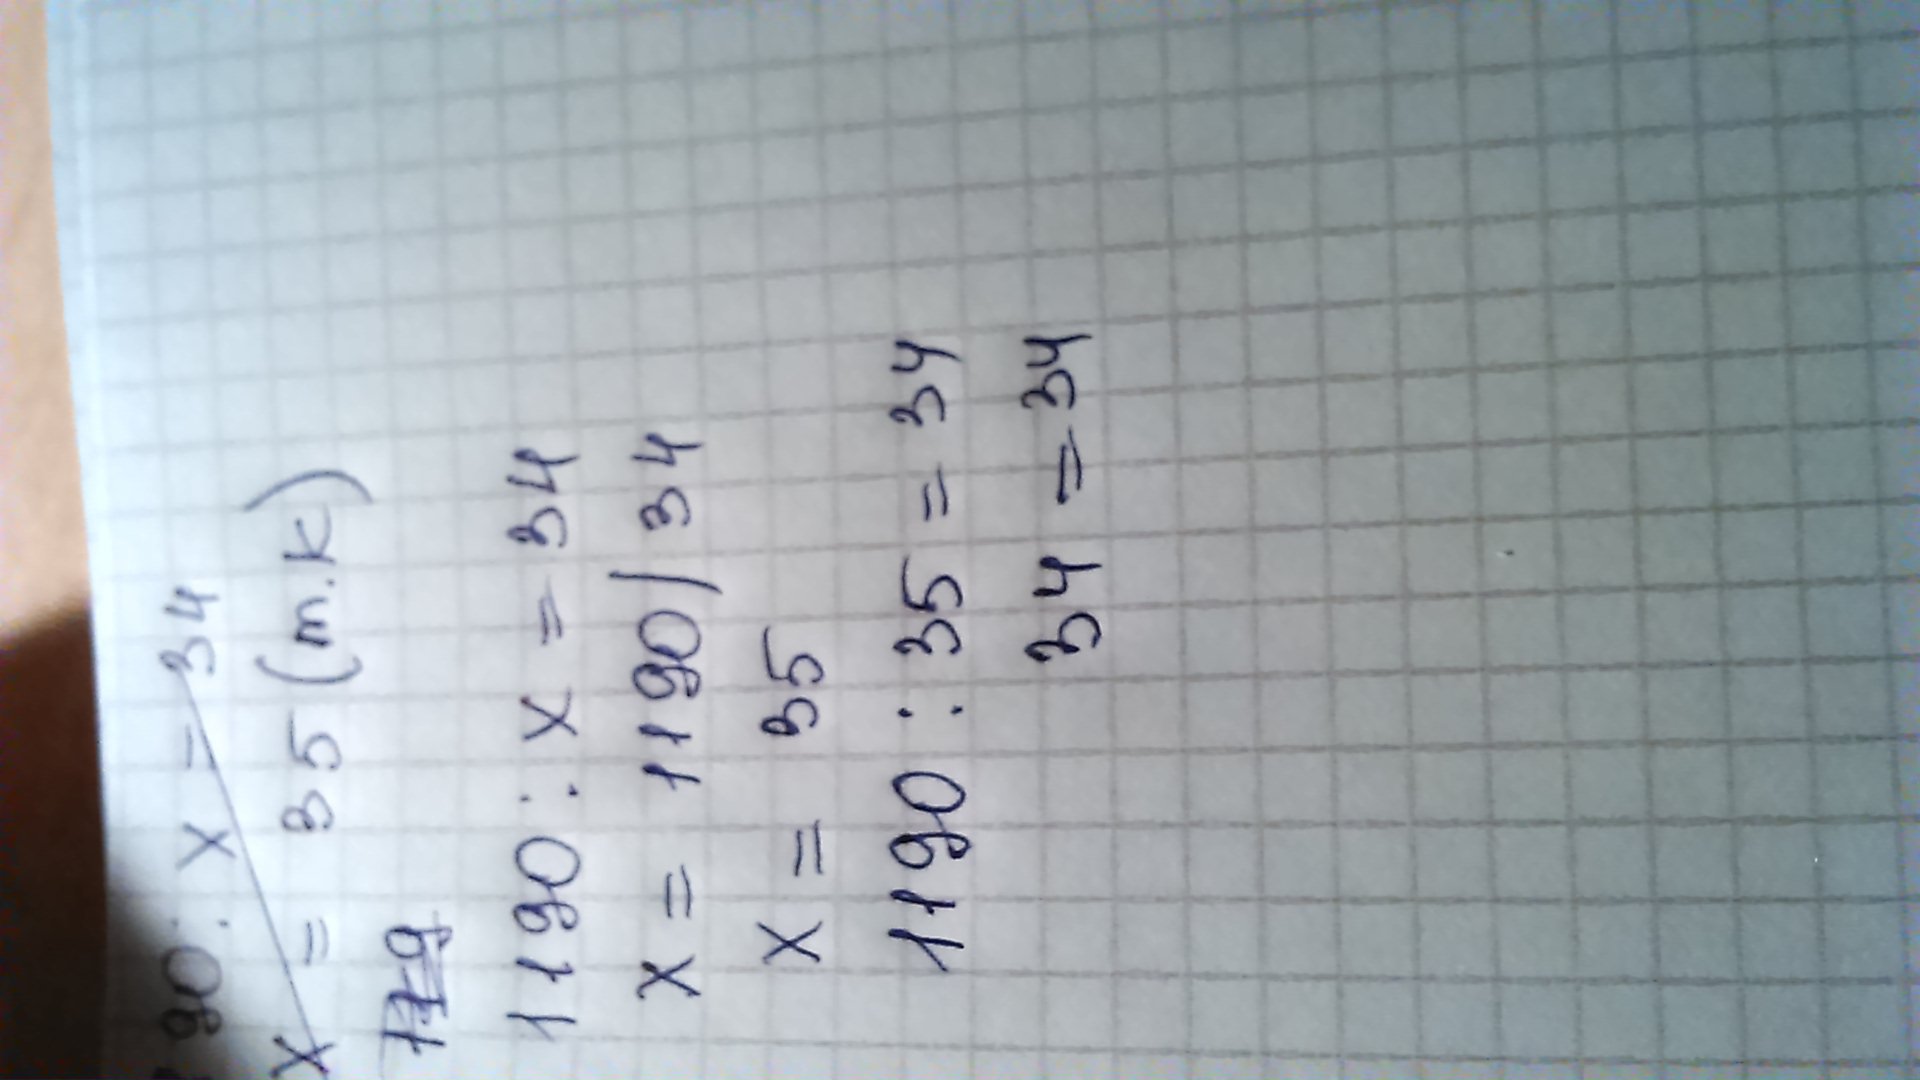 90 : x = 34
x = 35 (m.k)
119
1190 : x = 34
x = 1190 / 34
x = 35
1190 : 35 = 34
34 = 34